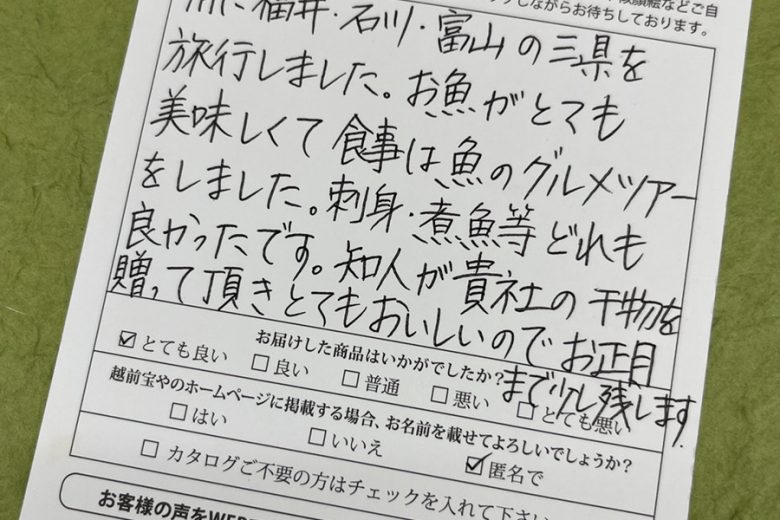 しながらお待ちしております。
福井・石川・富山の三県を
旅行しました。お魚がとても
美味しくて食事は魚のグルメツアー
をしました。刺身・煮魚等どれも
良かったです。知人が貴社の干物を
贈って頂きとてもおいしいのでお正月
まで少し残します。
お届けした商品はいかがでしたか?
☑とても良い □良い □普通 □悪い □とても悪い
越前宝やのホームページに掲載する場合、お名前を載せてよろしいでしょうか?
□はい □いいえ ☑匿名で
□カタログご不要の方はチェックを入れて下さい
お客様の声をWEB